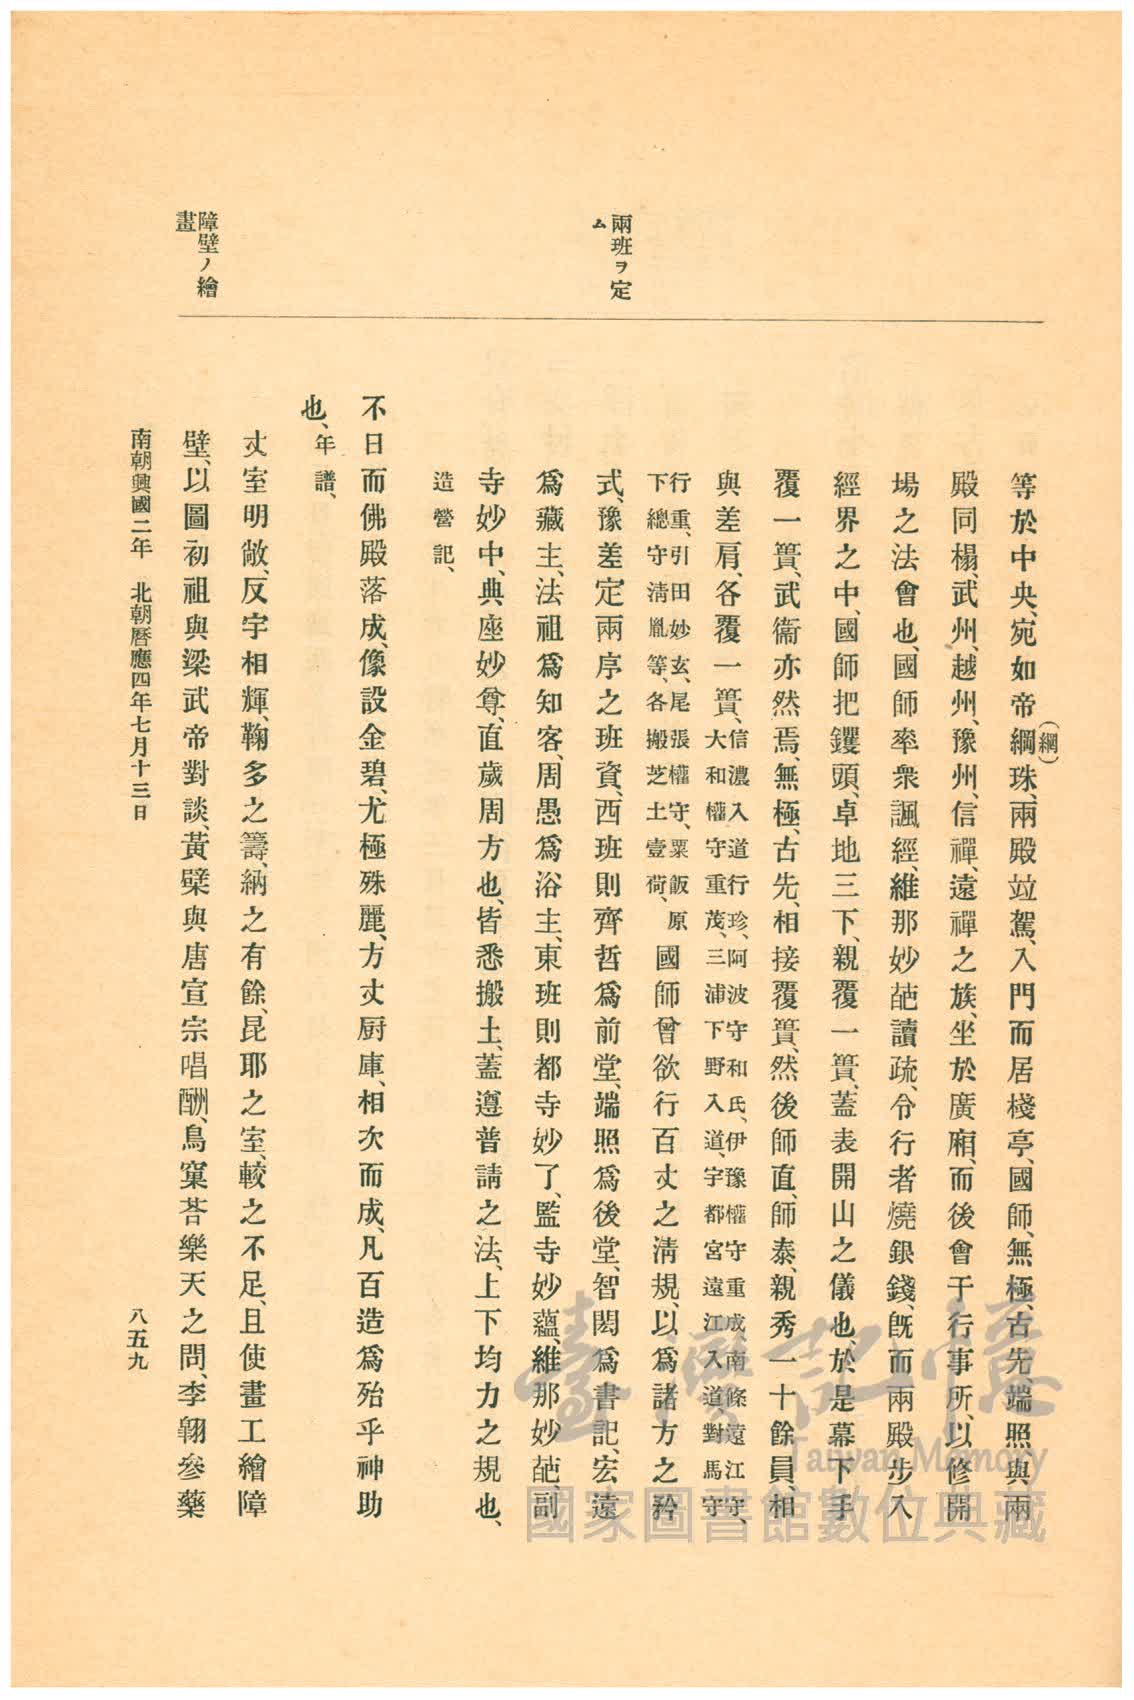 兩班ヲ定
ム
障壁ノ繪
畫
等於中央、宛如帝綱珠、兩殿竝駕、入門而居棧亭、國師、無極、古先、端照與兩
(網)
殿同榻、武州、越州、豫州、信禪、遠禪之族、坐於廣廂、而後會于行事所、以修開
場之法會也、國師率衆諷經、維那妙葩讀疏、令行者燒銀錢、旣而兩殿步入
經界之中、國師把钁頭、卓地三下、親覆一簣、蓋表開山之儀也、於是幕下手
覆一簣、武衞亦然焉、無極、古先、相接覆簣、然後師直、師泰、親秀一十餘員、相
與差肩、各覆一簣、信濃入道行珍、阿波守和氏、伊豫權守重成、南條遠江守、
大和權守重茂、三浦下野入道、宇都宮遠江入道、對馬守
行重、引田妙玄、尾張權守、粟飯原
下總守淸胤等、各搬芝土壹荷、
國師曾欲行百丈之淸規、以爲諸方之矜
式、豫差定兩序之班資、西班則齊哲爲前堂、端照爲後堂、智閎爲書記、宏遠
爲藏主、法祖爲知客、周愚爲浴主、東班則都寺妙了、監寺妙蘊、維那妙葩、副
寺妙中、典座妙尊、直歲周方也、皆悉搬土、蓋遵普請之法、上下均力之規也、
造營記、
不日而佛殿落成、像設金碧、尤極殊麗、方丈厨庫、相次而成、凡百造爲殆乎神助
也、年譜、
丈室明敞、反宇相輝、鞠多之籌、納之有餘、昆耶之室、較之不足、且使畫工繪障
壁、以圖初祖與梁武帝對談、黃檗與唐宣宗唱酬、鳥窠荅樂天之問、李翶參藥
南朝興國二年 北朝曆應四年七月十三日
八五九
臺灣記憶
Taiwan Memory
國家圖書館數位典藏